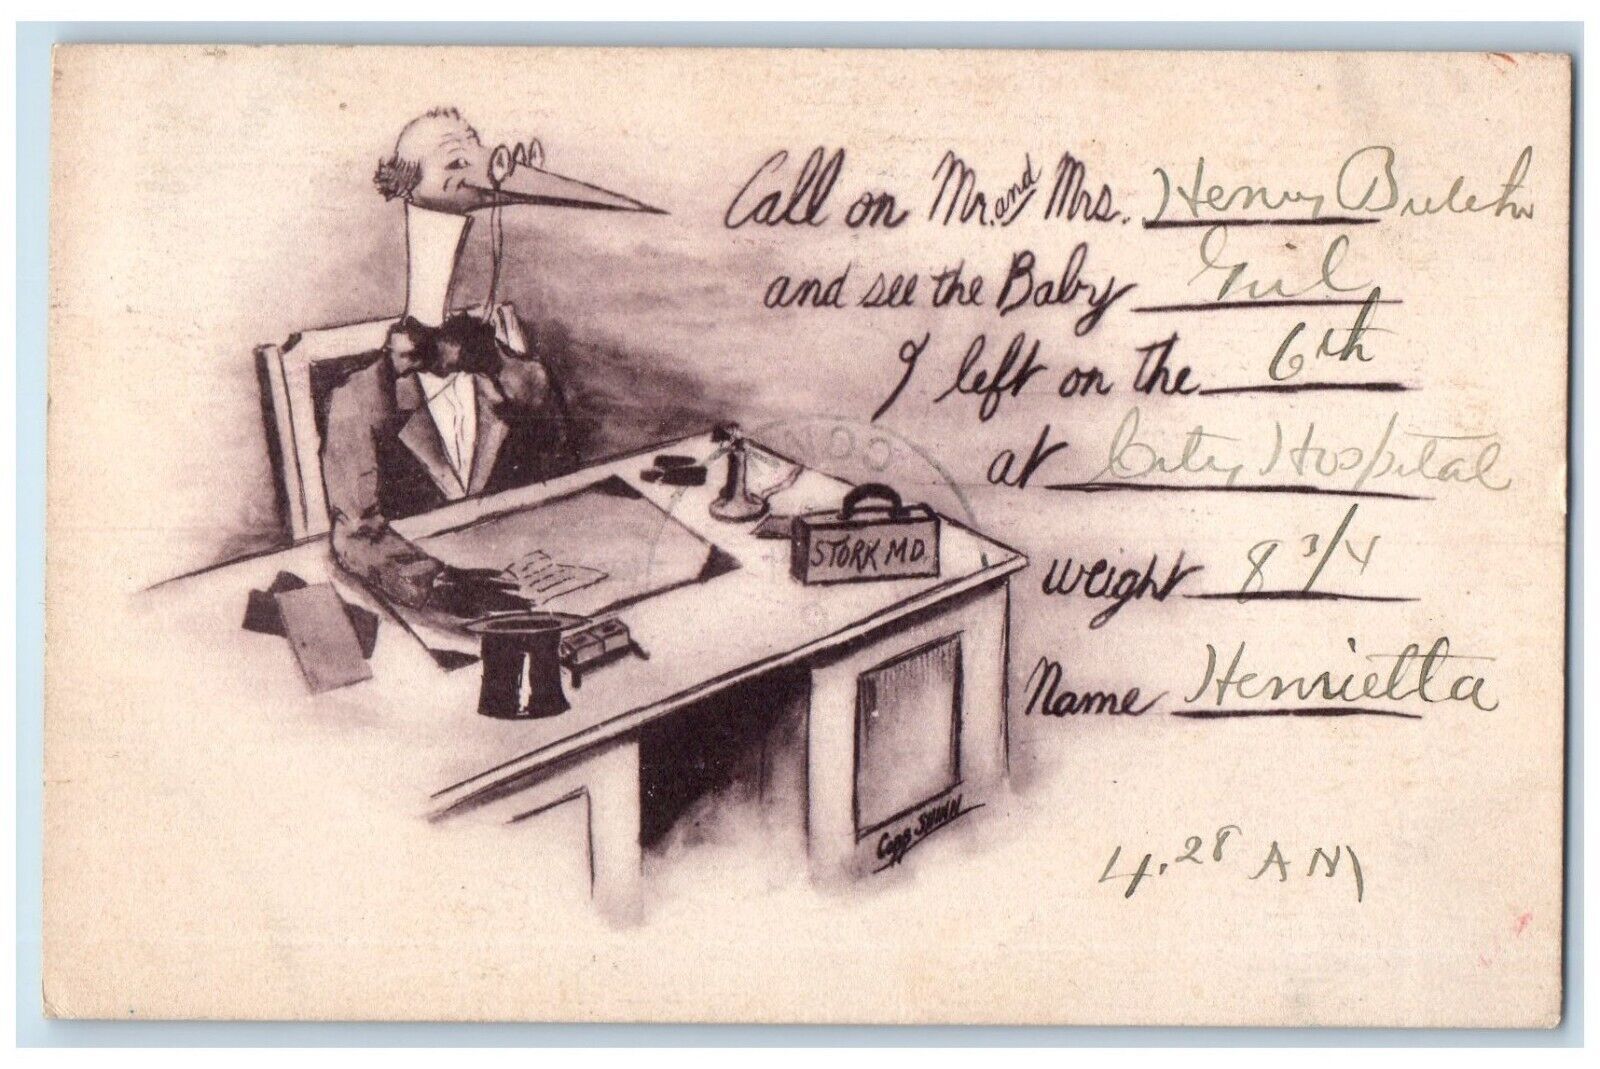 Call on Mr. and Mrs. Henry
and see the Baby Girl
I left on the 6th
at City Hospital
STORK M.D.
weight 8 3/4
Name Henrietta
Cobb SHINN
4.28 AM